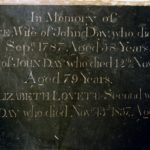 In Memory of
Wife of John Day, who died
Sepr. 1787, Aged 58 Years.
of JOHN DAY who died 12th Nov
Aged 79 Years.
ELIZABETH LOVETT Second
DAY who died Novr. 13th 1837, Aged